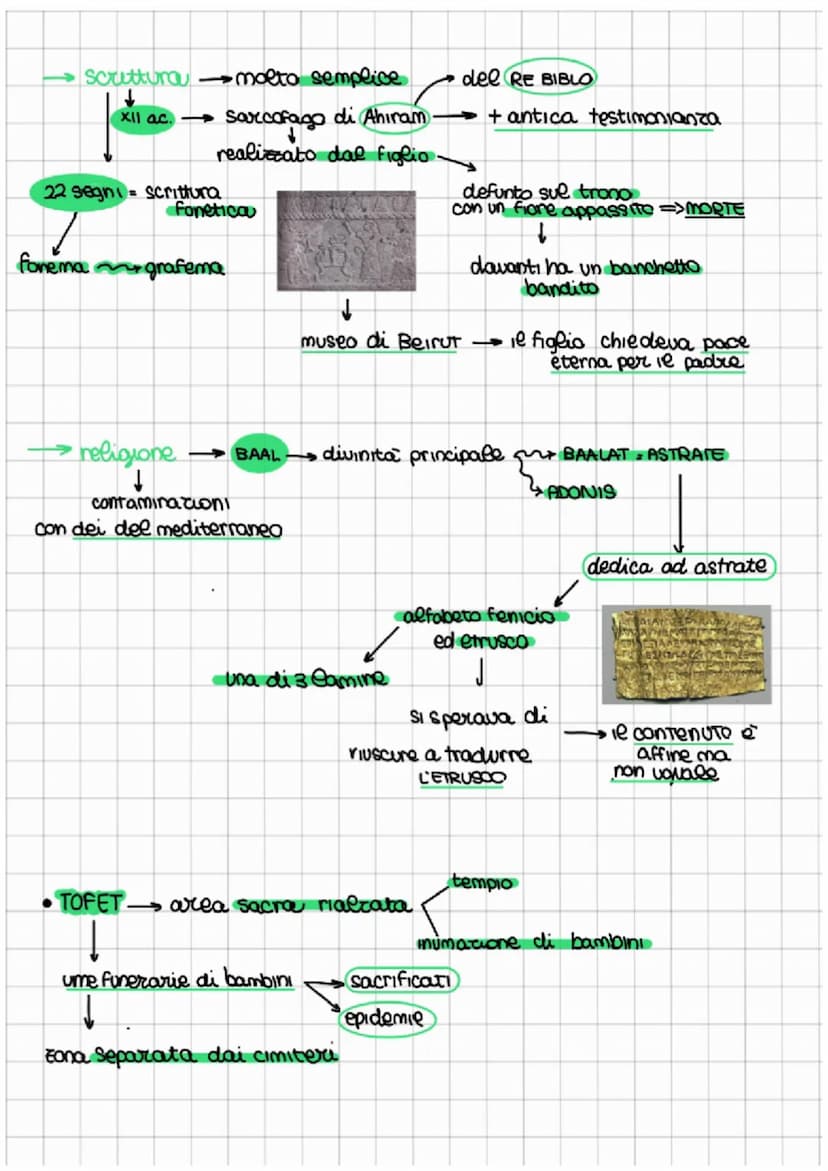 → scrittura → molto semplice → del RE BIBLO
XII ac. → sarcofago di Ahiram → + antica testimonianza
realizzato dal figlio
22 segni = scrittura
fonetica
defunto sul trono
con un fiore appassito => MORTE
fonema → grafema
davanti ha un banchetto
bandito
museo di Beirut → il figlio chiedeva pace
eterna per il padre
→ religione → BAAL → divinità principale → BAALAT = ASTRATE
ADONIS
contaminazioni
con dei del mediterraneo
dedica ad astrate
alfabeto fenicio
ed etrusco
una di 3 lamine
si sperava di
riuscire a tradurre
L'ETRUSCO
→ il contenuto è
affine ma
non uguale
• TOFET → area sacra rialzata
tempio
inumazione di bambini
urne funerarie di bambini → sacrificati
epidemie
zona separata dai cimiteri